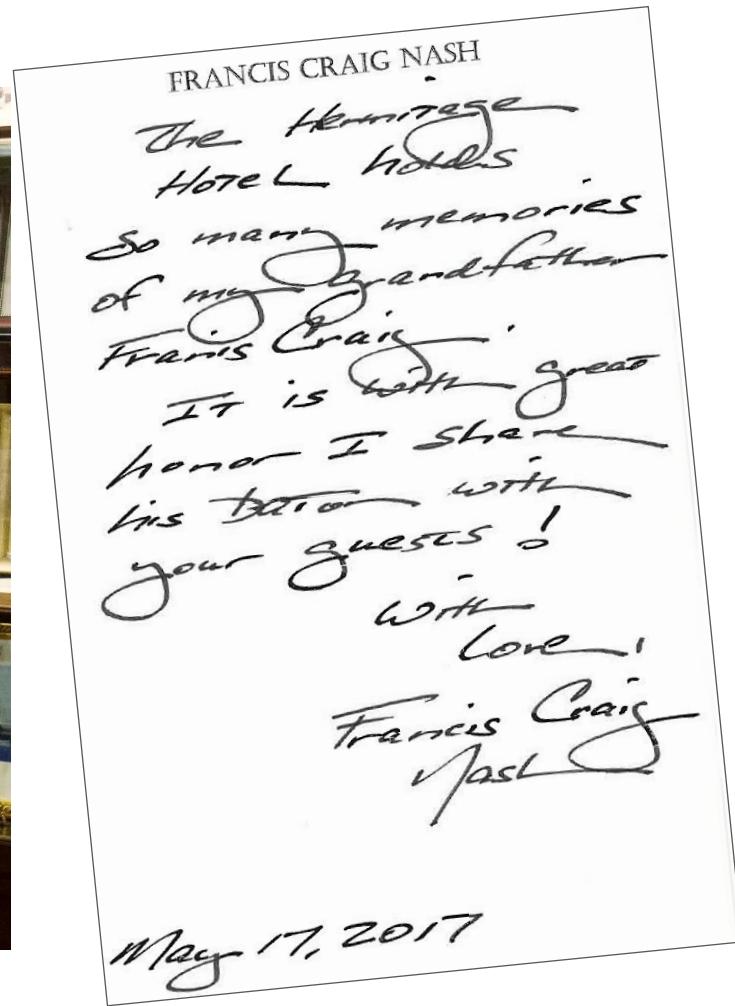 FRANCIS CRAIG NASH
The Hermitage
Hotel holds
so many memories
of my grandfather
Franis Craig.
It is with great
honor I share
his baton with
your guests!
With
Love,
Francis Craig
Nash
May 17, 2017